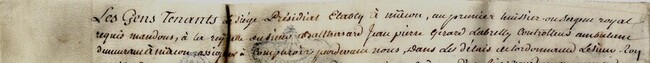 Les Gens Tenants le siège Présidial Etably à mâcon, au premier huissier ou sergent royal
requis mandons, à la requette du sieur Jean pierre Girard Labrelly Controlleur ambulant
demeurant à mâcon assigner à Comparoir pardevant nous, dans les délais de l'ordonnance Le sieur Roy